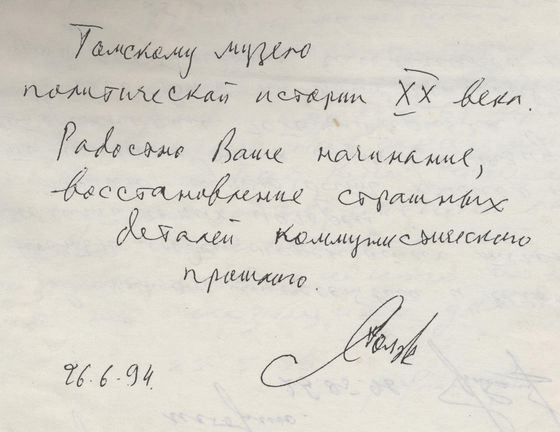 Томскому музею
политической истории XX века.
Радостно Ваше начинание,
восстановление страшных
деталей коммунистического
прошлого.
26.6.94.